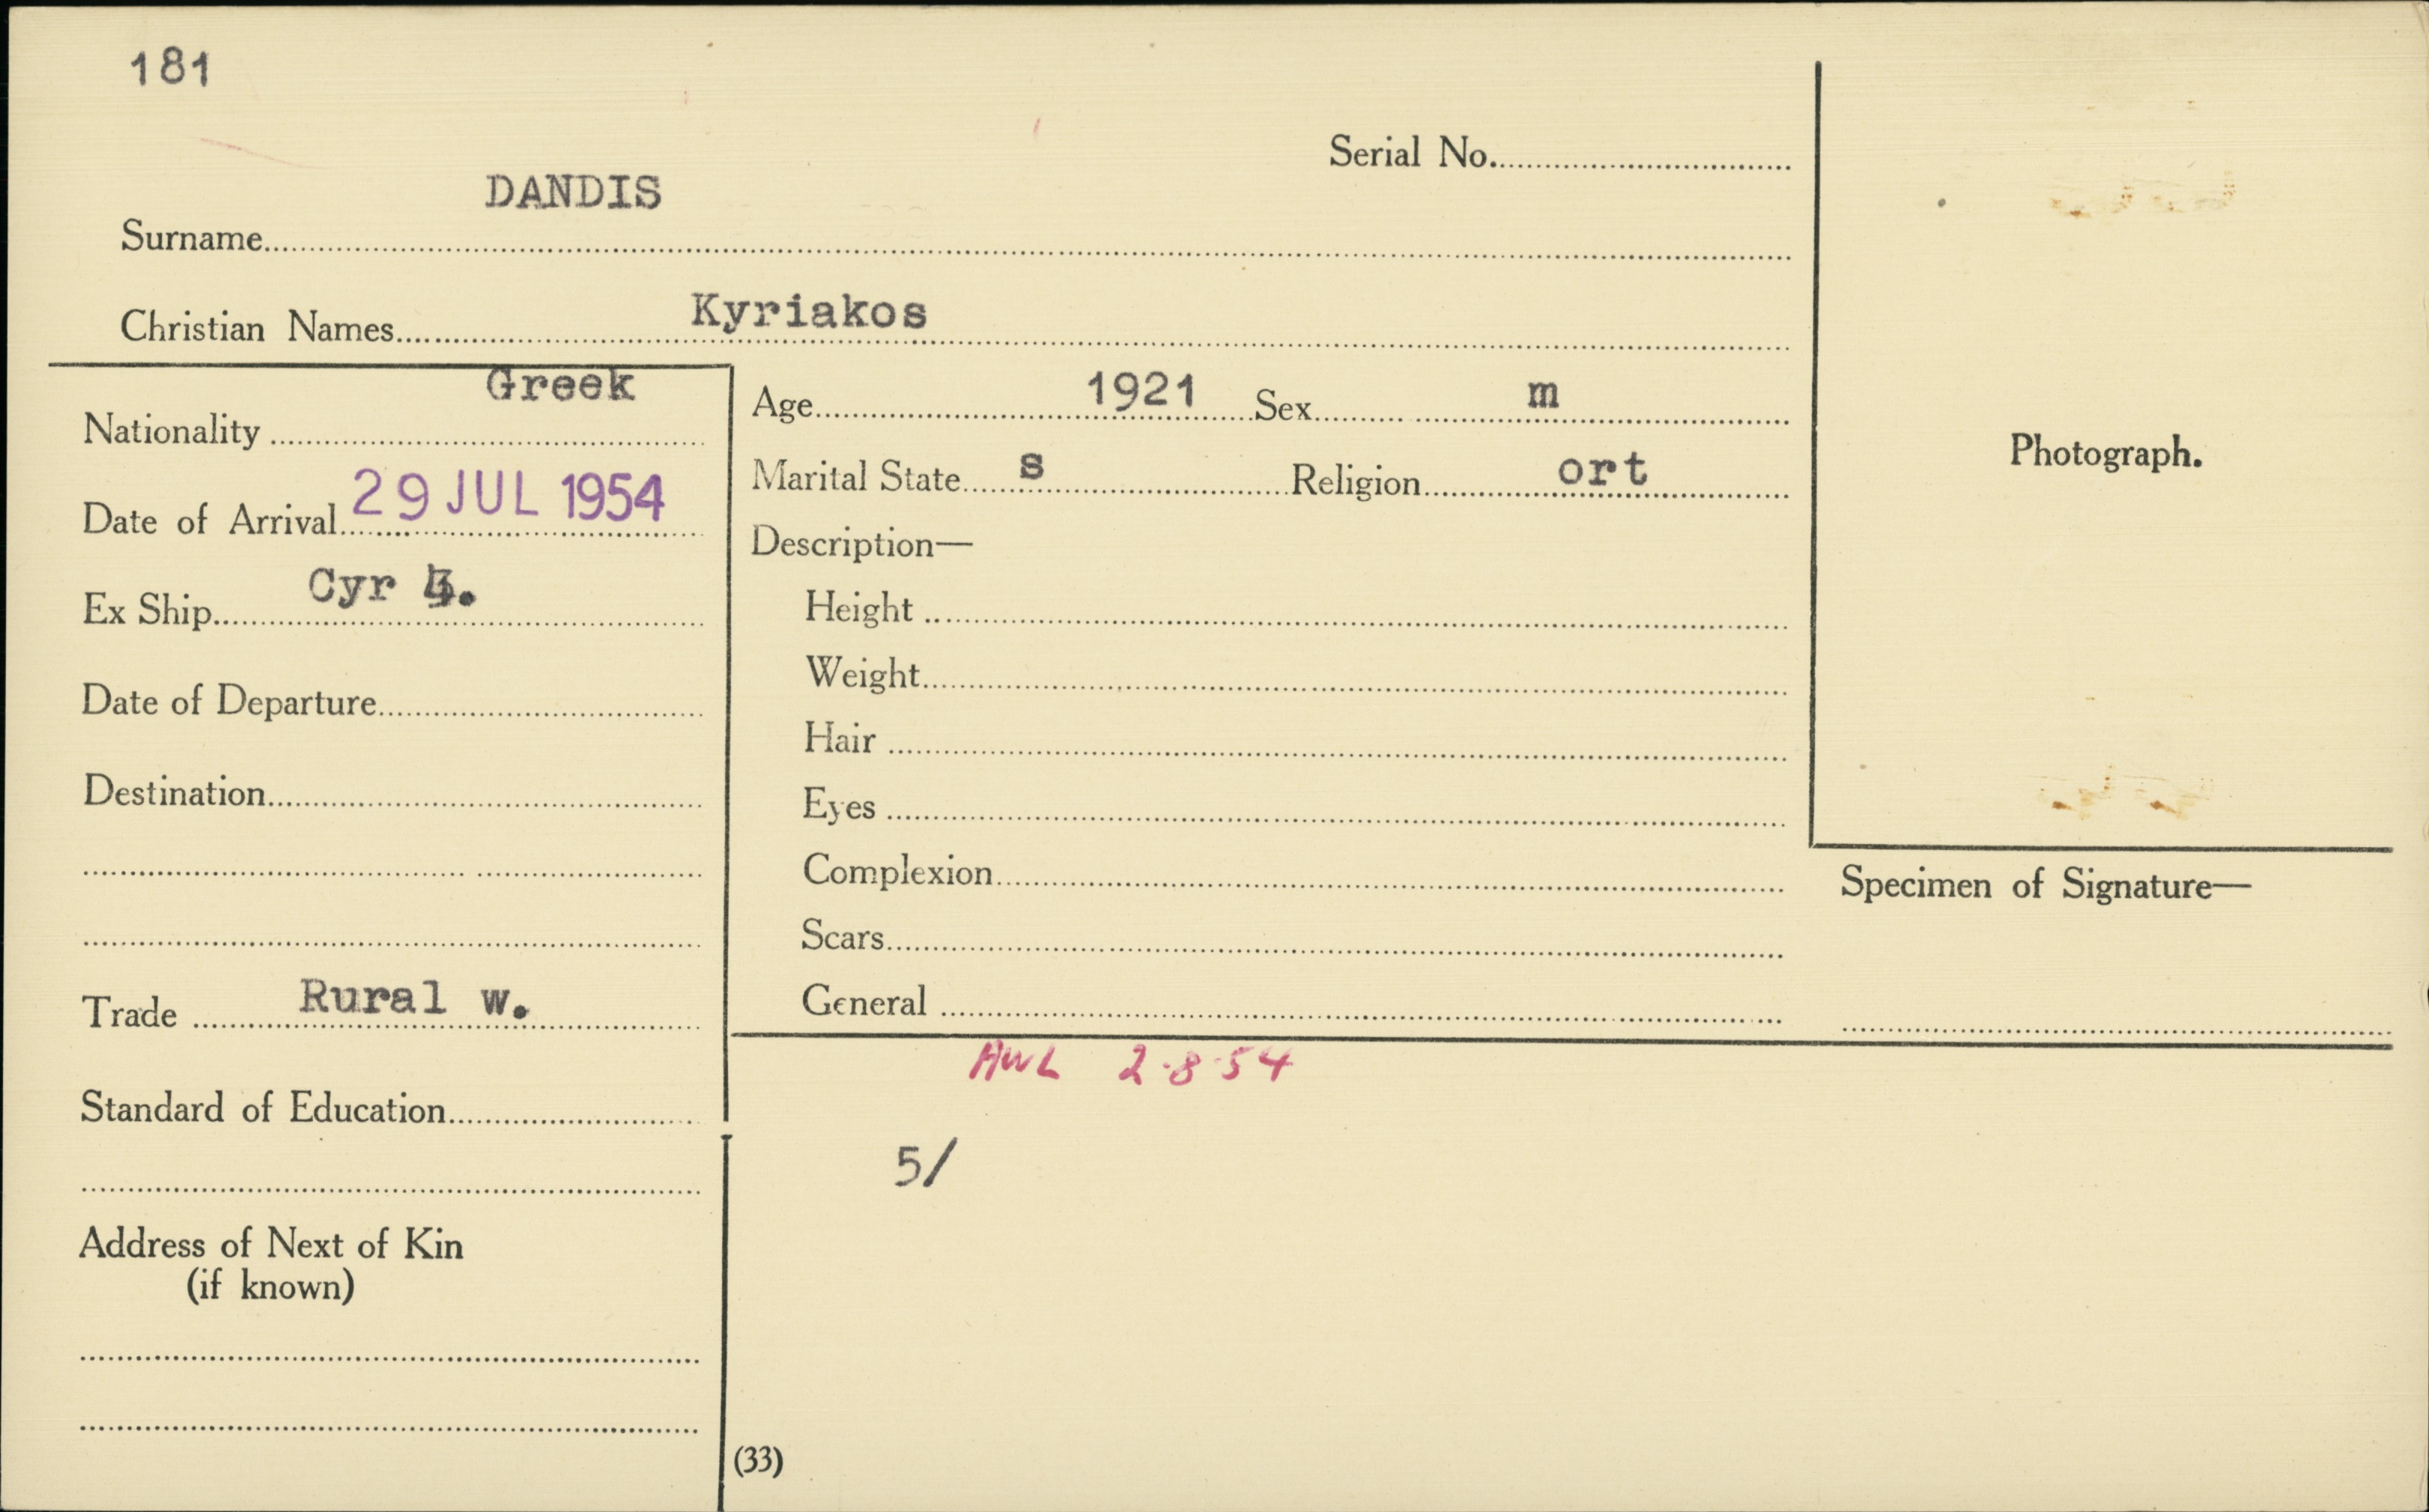 181
Serial No.
DANDIS
Surname
Kyriakos
Christian Names
Greek
Nationality
29 JUL 1954
Date of Arrival
Cyr
Ex Ship
Date of Departure
Destination
Rural w.
Trade
Standard of Education
Address of Next of Kin
(if known)
Age 1921 Sex m
Marital State s Religion ort
Description—
Height
Weight
Hair
Eyes
Complexion
Scars
General
AWL 2·8·54
5/
(33)
Photograph.
Specimen of Signature—